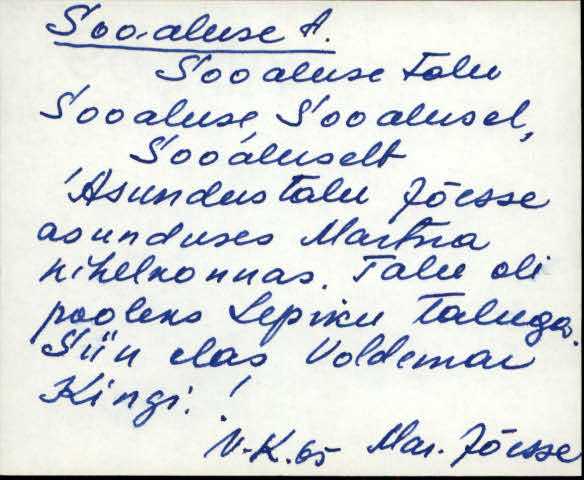 Soo-aluse t.
Sooaluse talu
Sooaluse, Sooalusel,
Sooaluselt
'Asundustalu Jõesse
asunduses Martna
kihelkonnas. Talu oli
pooleks Lepiku taluga.
Siin elas Voldemar
Kingi.!
V.-K. 65 Mar. Jõesse